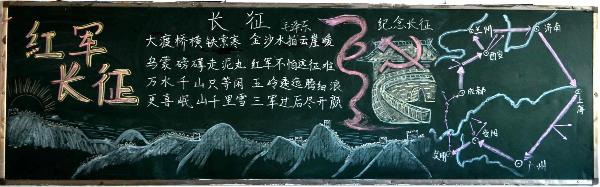 红军
长征
长征
毛泽东
大渡桥横铁索寒 金沙水拍云崖暖
乌蒙磅礴走泥丸 红军不怕远征难
万水千山只等闲 五岭逶迤腾细浪
更喜岷山千里雪 三军过后尽开颜
纪念长征
兰州
济南
西安
成都
上海
贵阳
昆明
广州